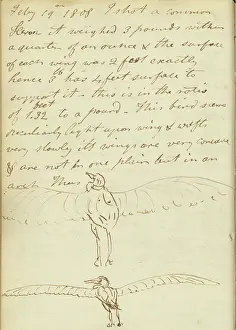 Feby 19th 1808 I shot a common
Heron it weighed 3 pounds within
a quarter of an ounce & the surface
of each wing was 2 feet exactly,
hence 3 lb has 4 feet surface to
support it - this is in the ratio
of 1.32 feet to a pound. - This bird seems
peculiarly light upon wing & wafts
very slowly its wings are very concave
& are not in one plain but in an
arch Thus